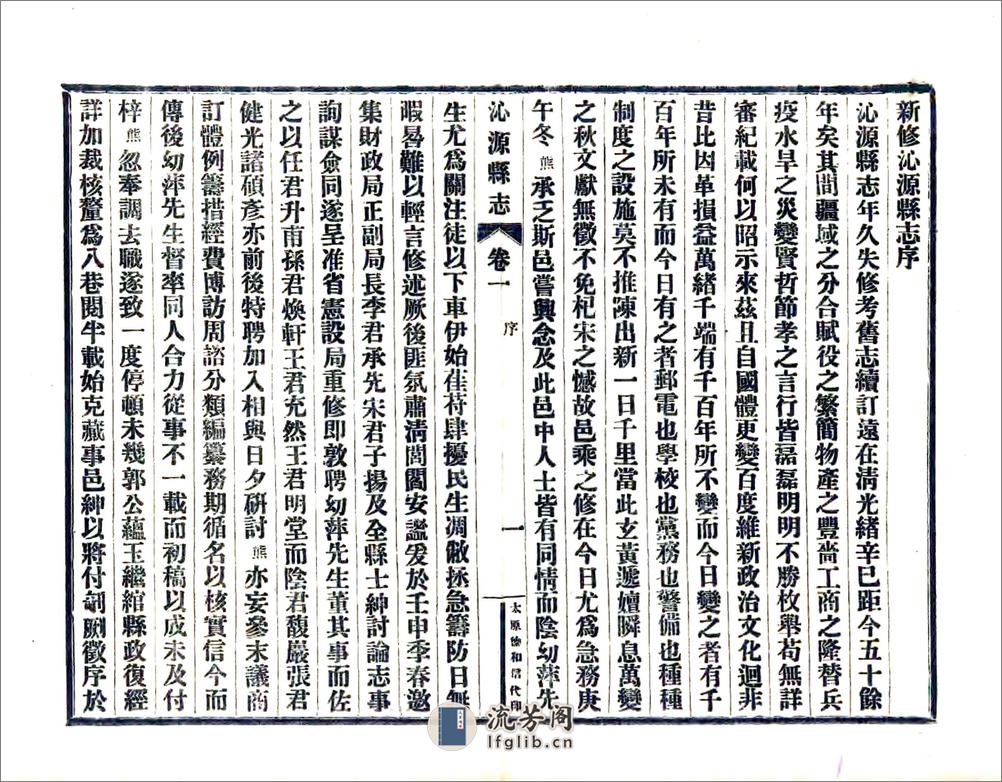 新修沁源縣志序
沁源縣志年久失修考舊志續訂遠在清光緒辛巳距今五十餘
年矣其間疆域之分合賦役之繁簡物產之豐嗇工商之隆替兵
疫水旱之災變賢哲節孝之言行皆磊磊明明不勝枚舉苟無詳
審紀載何以昭示來茲且自國體更變百度維新政治文化迴非
昔比因革損益萬緒千端有千百年所不變而今日變之者有千
百年所未有而今日有之者郵電也學校也黨務也警備也種種
制度之設施莫不推陳出新一日千里當此玄黃遞嬗瞬息萬變
之秋文獻無徵不免杞宋之憾故邑乘之修在今日尤為急務庚
午冬熊承乏斯邑嘗興念及此邑中人士皆有同情而陰幼萍先
沁源縣志 卷一 序 一 太原德和信代印
生尤為關注徒以下車伊始萑苻肆擾民生凋敝拯急籌防日無
暇晷難以輕言修述厥後匪氛肅清閭閻安謐爰於壬申季春邀
集財政局正副局長李君承先宋君子揚及全縣士紳討論志事
詢謀僉同遂呈准省憲設局重修即敦聘幼萍先生董其事而佐
之以任君升甫孫君煥軒王君充然王君明堂而陰君馥嚴張君
健光諸碩彥亦前後特聘加入相與日夕硏討熊亦妄參末議商
訂體例籌措經費博訪周諮分類編纂務期循名以核實信今而
傳後幼萍先生督率同人合力從事不一載而初稿以成未及付
梓熊忽奉調去職遂致一度停頓未幾郭公蘊玉繼綰縣政復經
詳加裁核釐為八巷閱半載始克蕆事邑紳以將付剞劂徵序於
流芳阁
lfglib.cn